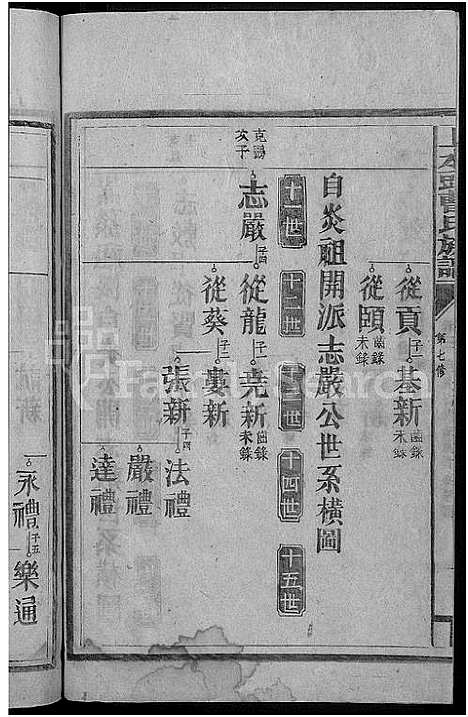 氏族譜
第七修
從頁 子一 基新 齒錄未錄
從頤 齒錄未錄
自炎祖開派志嚴公世系橫圖
十一世 十二世 十三世 十四世 十五世
克賜次子
志嚴 子四 從龍 子一 堯新 齒錄未錄
從葵 子二 婁新
張新 子四 法禮
嚴禮
達禮
永禮 子五 樂通